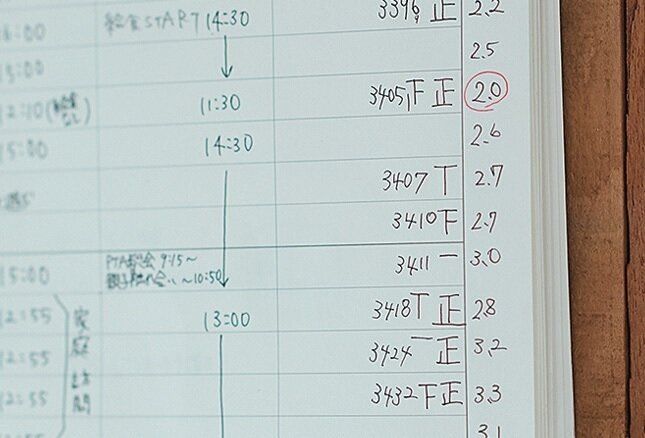 16:00 給食START 14:30 3396 正 2.2
15:00 2.5
12:10(給食なし) 11:30 3405 下正 2.0
15:00 14:30 2.6
3407 丅 2.7
3410 下 2.7
15:00 PTA総会 9:15~ 3411 一 3.0
~10:50
12:55 家庭訪問 13:00 3418 丅正 2.8
12:55 3424 一正 3.2
12:55 3432 下正 3.3
3.1